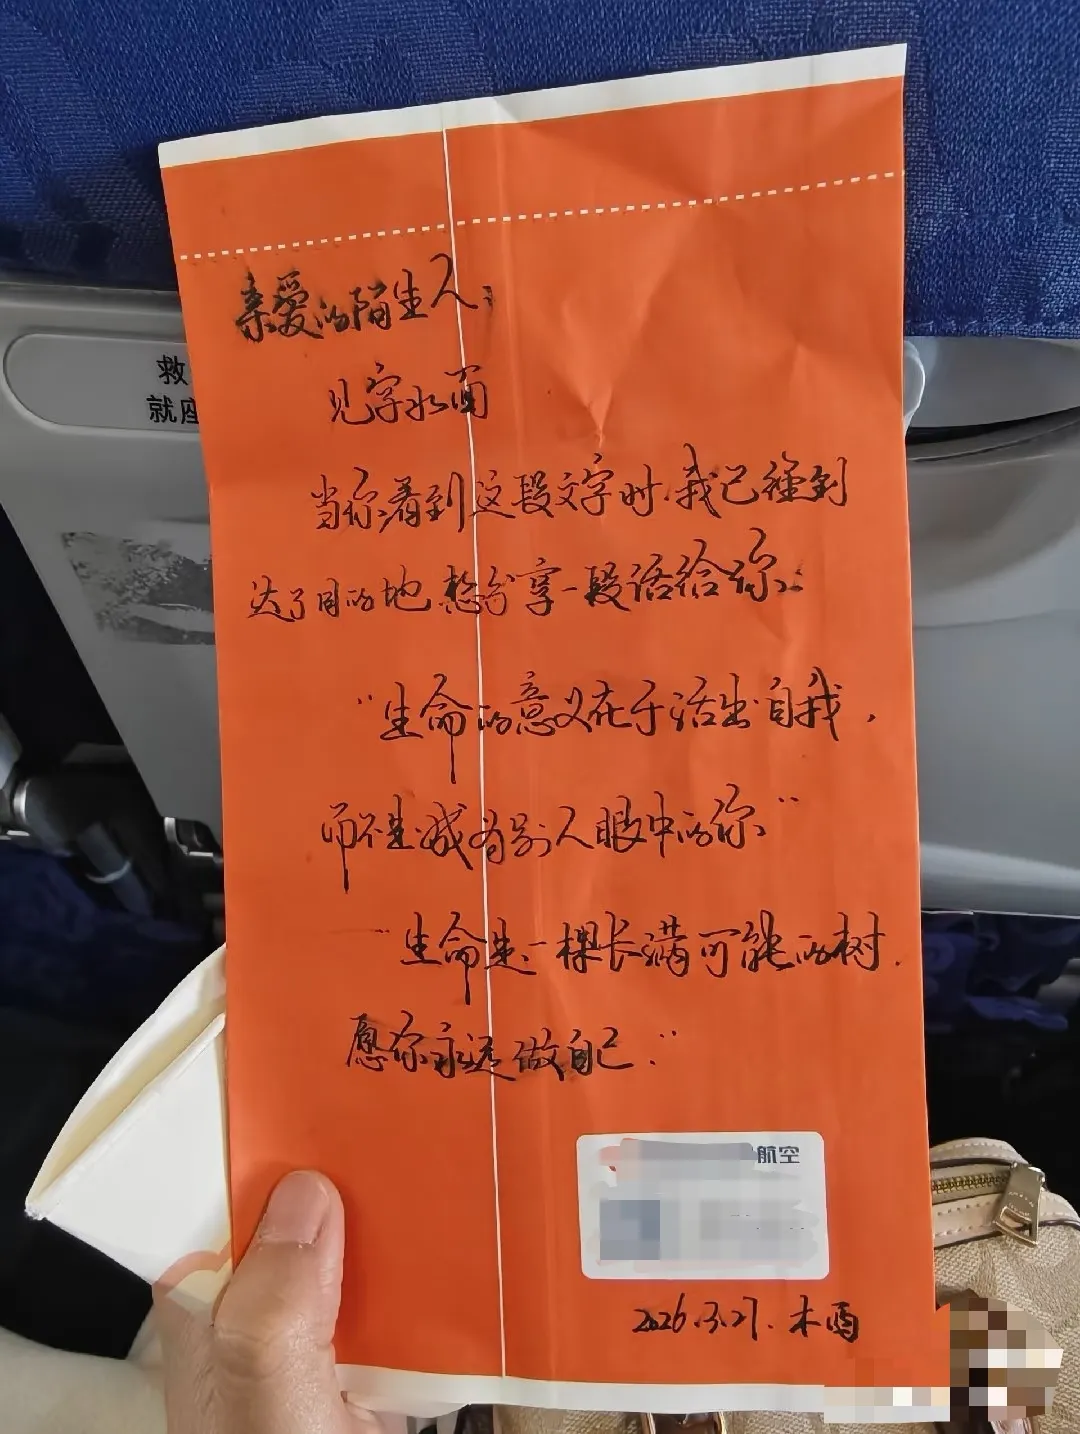 救
就座
亲爱的陌生人：
见字如面
当你看到这段文字时,我已经到
达了目的地,想分享一段话给你：
“生命的意义在于活出自我，
而不是成为别人眼中的你”
“生命是一棵长满可能的树.
愿你永远做自己.”
航空
2026.3.27. 木酉